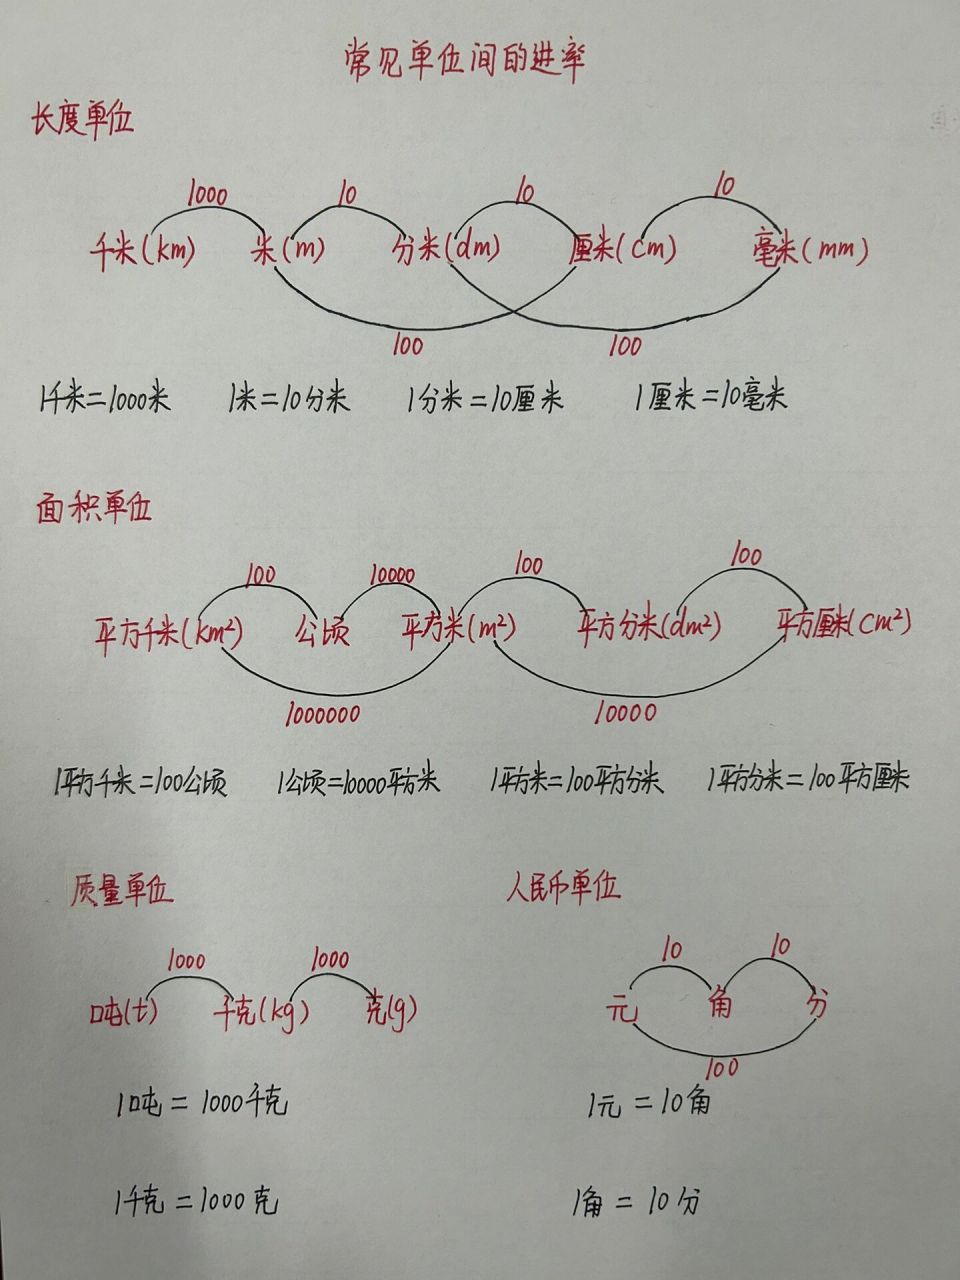 常见单位间的进率
长度单位
1000 10 10 10
千米(km) 米(m) 分米(dm) 厘米(cm) 毫米(mm)
100 100
1千米=1000米 1米=10分米 1分米=10厘米 1厘米=10毫米
面积单位
100 10000 100 100
平方千米(km²) 公顷 平方米(m²) 平方分米(dm²) 平方厘米(cm²)
1000000 10000
1平方千米=100公顷 1公顷=10000平方米 1平方米=100平方分米 1平方分米=100平方厘米
质量单位 人民币单位
1000 1000 10 10
吨(t) 千克(kg) 克(g) 元 角 分
100
1吨=1000千克 1元=10角
1千克=1000克 1角=10分